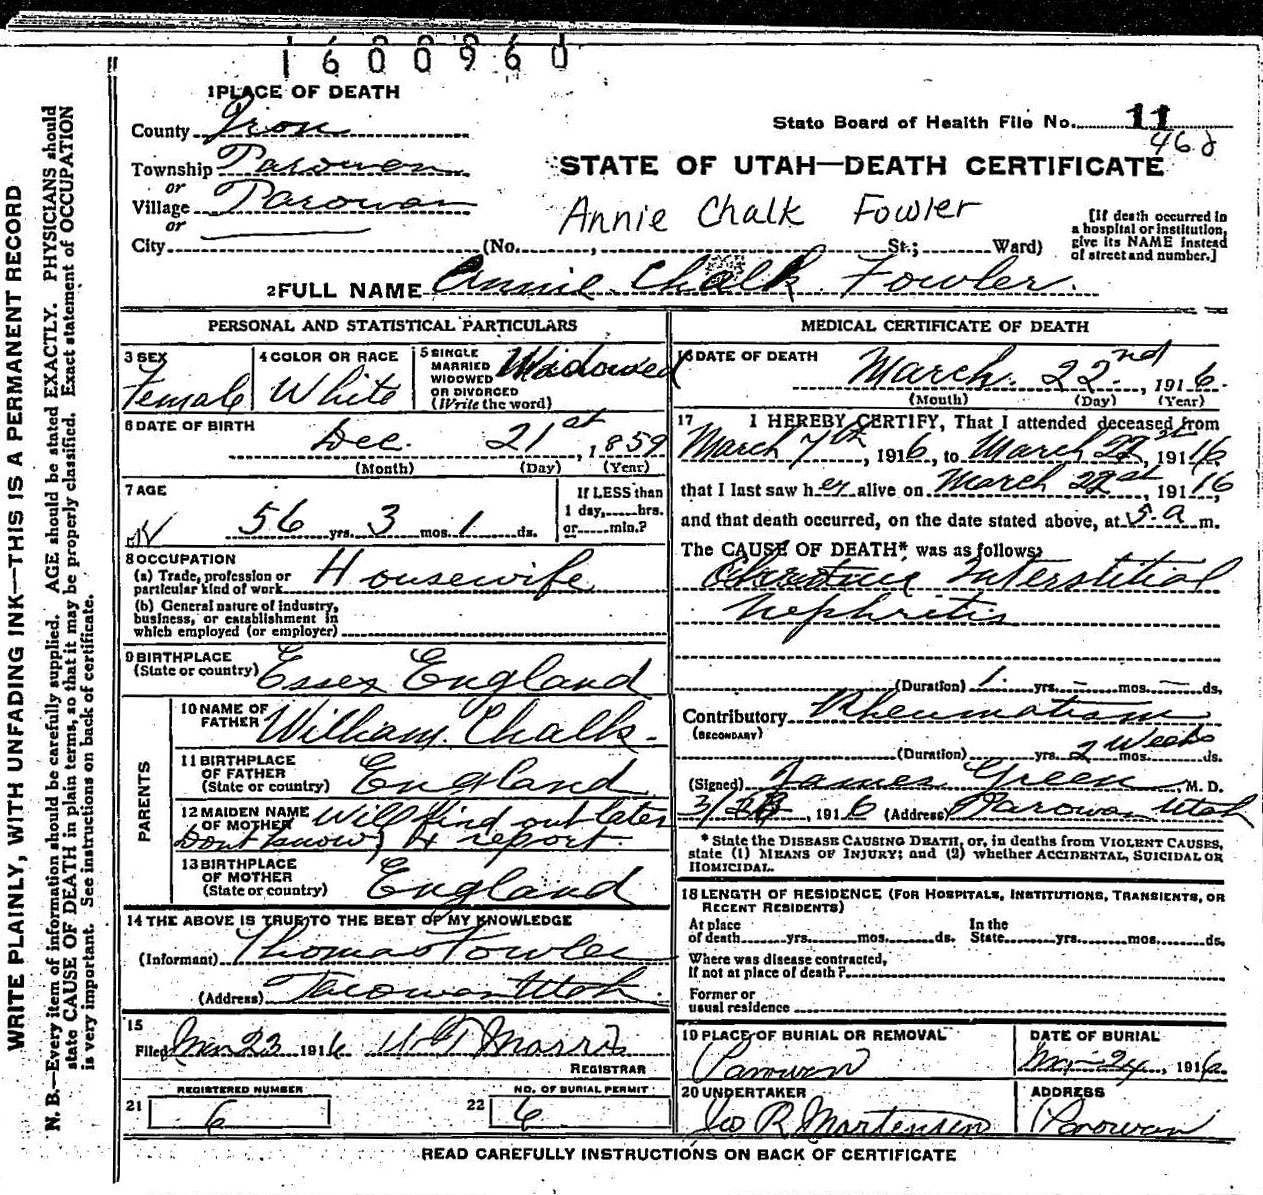 1600960
1 PLACE OF DEATH
County Iron
State Board of Health File No. 11
468
Township Parowan
or
STATE OF UTAH—DEATH CERTIFICATE
Village Parowan
or
Annie Chalk Fowler
[If death occurred in
a hospital or institution,
give its NAME instead
of street and number.]
City (No. , St.; Ward)
2 FULL NAME Annie Chalk Fowler.
PERSONAL AND STATISTICAL PARTICULARS
3 SEX
Female
4 COLOR OR RACE
White
5 SINGLE
MARRIED
WIDOWED
OR DIVORCED
(Write the word)
Widowed
6 DATE OF BIRTH
Dec. 21st, 1859
(Month) (Day) (Year)
7 AGE
56 yrs. 3 mos. 1 ds.
If LESS than
1 day, hrs.
or min.?
8 OCCUPATION
(a) Trade, profession or
particular kind of work Housewife
(b) General nature of industry,
business, or establishment in
which employed (or employer)
9 BIRTHPLACE
(State or country) Essex England
PARENTS
10 NAME OF
FATHER William Chalk.
11 BIRTHPLACE
OF FATHER
(State or country) England
12 MAIDEN NAME
OF MOTHER Will find out later
Dont know, & report.
13 BIRTHPLACE
OF MOTHER
(State or country) England
14 THE ABOVE IS TRUE TO THE BEST OF MY KNOWLEDGE
(Informant) Thomas Fowler
(Address) Parowan Utah.
15
Filed Mar 23 1916
REGISTRAR
REGISTERED NUMBER
21 6
NO. OF BURIAL PERMIT
22 6
MEDICAL CERTIFICATE OF DEATH
16 DATE OF DEATH
March. 22nd, 1916.
(Month) (Day) (Year)
17 I HEREBY CERTIFY, That I attended deceased from
March 7th, 1916, to March 22st, 1916,
that I last saw her alive on March 22st, 1916,
and that death occurred, on the date stated above, at 5.a m.
The CAUSE OF DEATH* was as follows:
Interstitial
Nephritis
(Duration) 1. yrs. – mos. – ds.
Contributory Rheumatism
(SECONDARY)
(Duration) yrs. 2 Weeks mos. ds.
(Signed) James Green, M. D.
1916 (Address) Parowan Utah
* State the DISEASE CAUSING DEATH, or, in deaths from VIOLENT CAUSES,
state (1) MEANS OF INJURY; and (2) whether ACCIDENTAL, SUICIDAL OR
HOMICIDAL.
18 LENGTH OF RESIDENCE (FOR HOSPITALS, INSTITUTIONS, TRANSIENTS, OR
RECENT RESIDENTS)
At place
of death yrs. mos. ds.
In the
State yrs. mos. ds.
Where was disease contracted,
if not at place of death?
Former or
usual residence
19 PLACE OF BURIAL OR REMOVAL
Parowan
DATE OF BURIAL
Mar 24, 1916.
20 UNDERTAKER
R Mortensen
ADDRESS
Parowan
READ CAREFULLY INSTRUCTIONS ON BACK OF CERTIFICATE
WRITE PLAINLY, WITH UNFADING INK—THIS IS A PERMANENT RECORD
N. B.—Every item of information should be carefully supplied. AGE should be stated EXACTLY. PHYSICIANS should
state CAUSE OF DEATH in plain terms, so that it may be properly classified. Exact statement of OCCUPATION
is very important. See instructions on back of certificate.